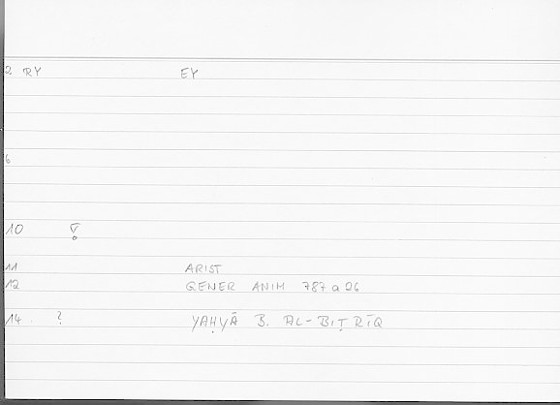 2 RY EY
6
10 !
11 ARIST
12 GENER ANIM 787 a 26
14 ? YAḤYĀ B. AL-BIṬRĪQ